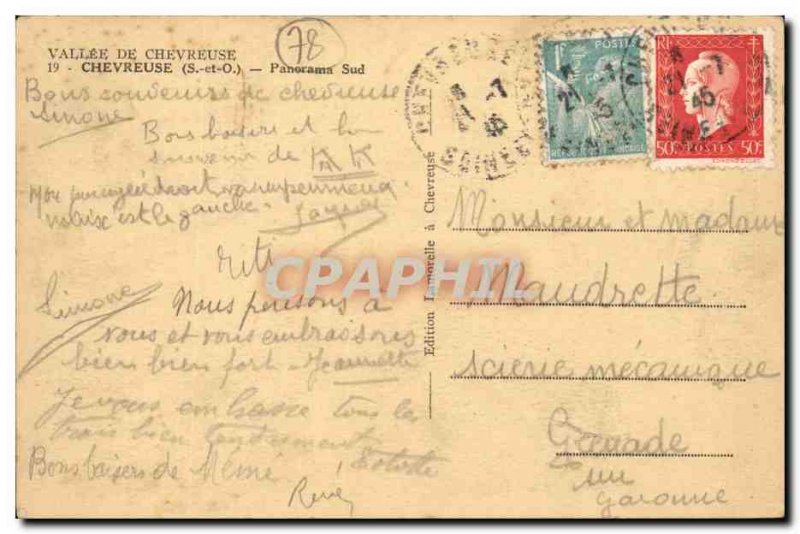 VALLÉE DE CHEVREUSE
19 - CHEVREUSE (S.-et-O.) - Panorama Sud
78
Bons souvenirs de chevreuse
Simone
Bons baisers et bon
souvenir de
est le gauche
Jacques
riti
Simone
Nous pensons à
vous et vous embrassons
bien bien fort - Jeannette
Je vous embrasse tous les
trois bien tendrement
Bons baisers de Mémé
René
Edition Lamorelle à Chevreuse
1F
POSTES
REPUBLIQUE FRANÇAISE
RF
50c POSTES 50c
21 - 7
45
Monsieur et madame
Naudrette
scierie mécanique
Grenade
sur
Garonne
CPARPHIL